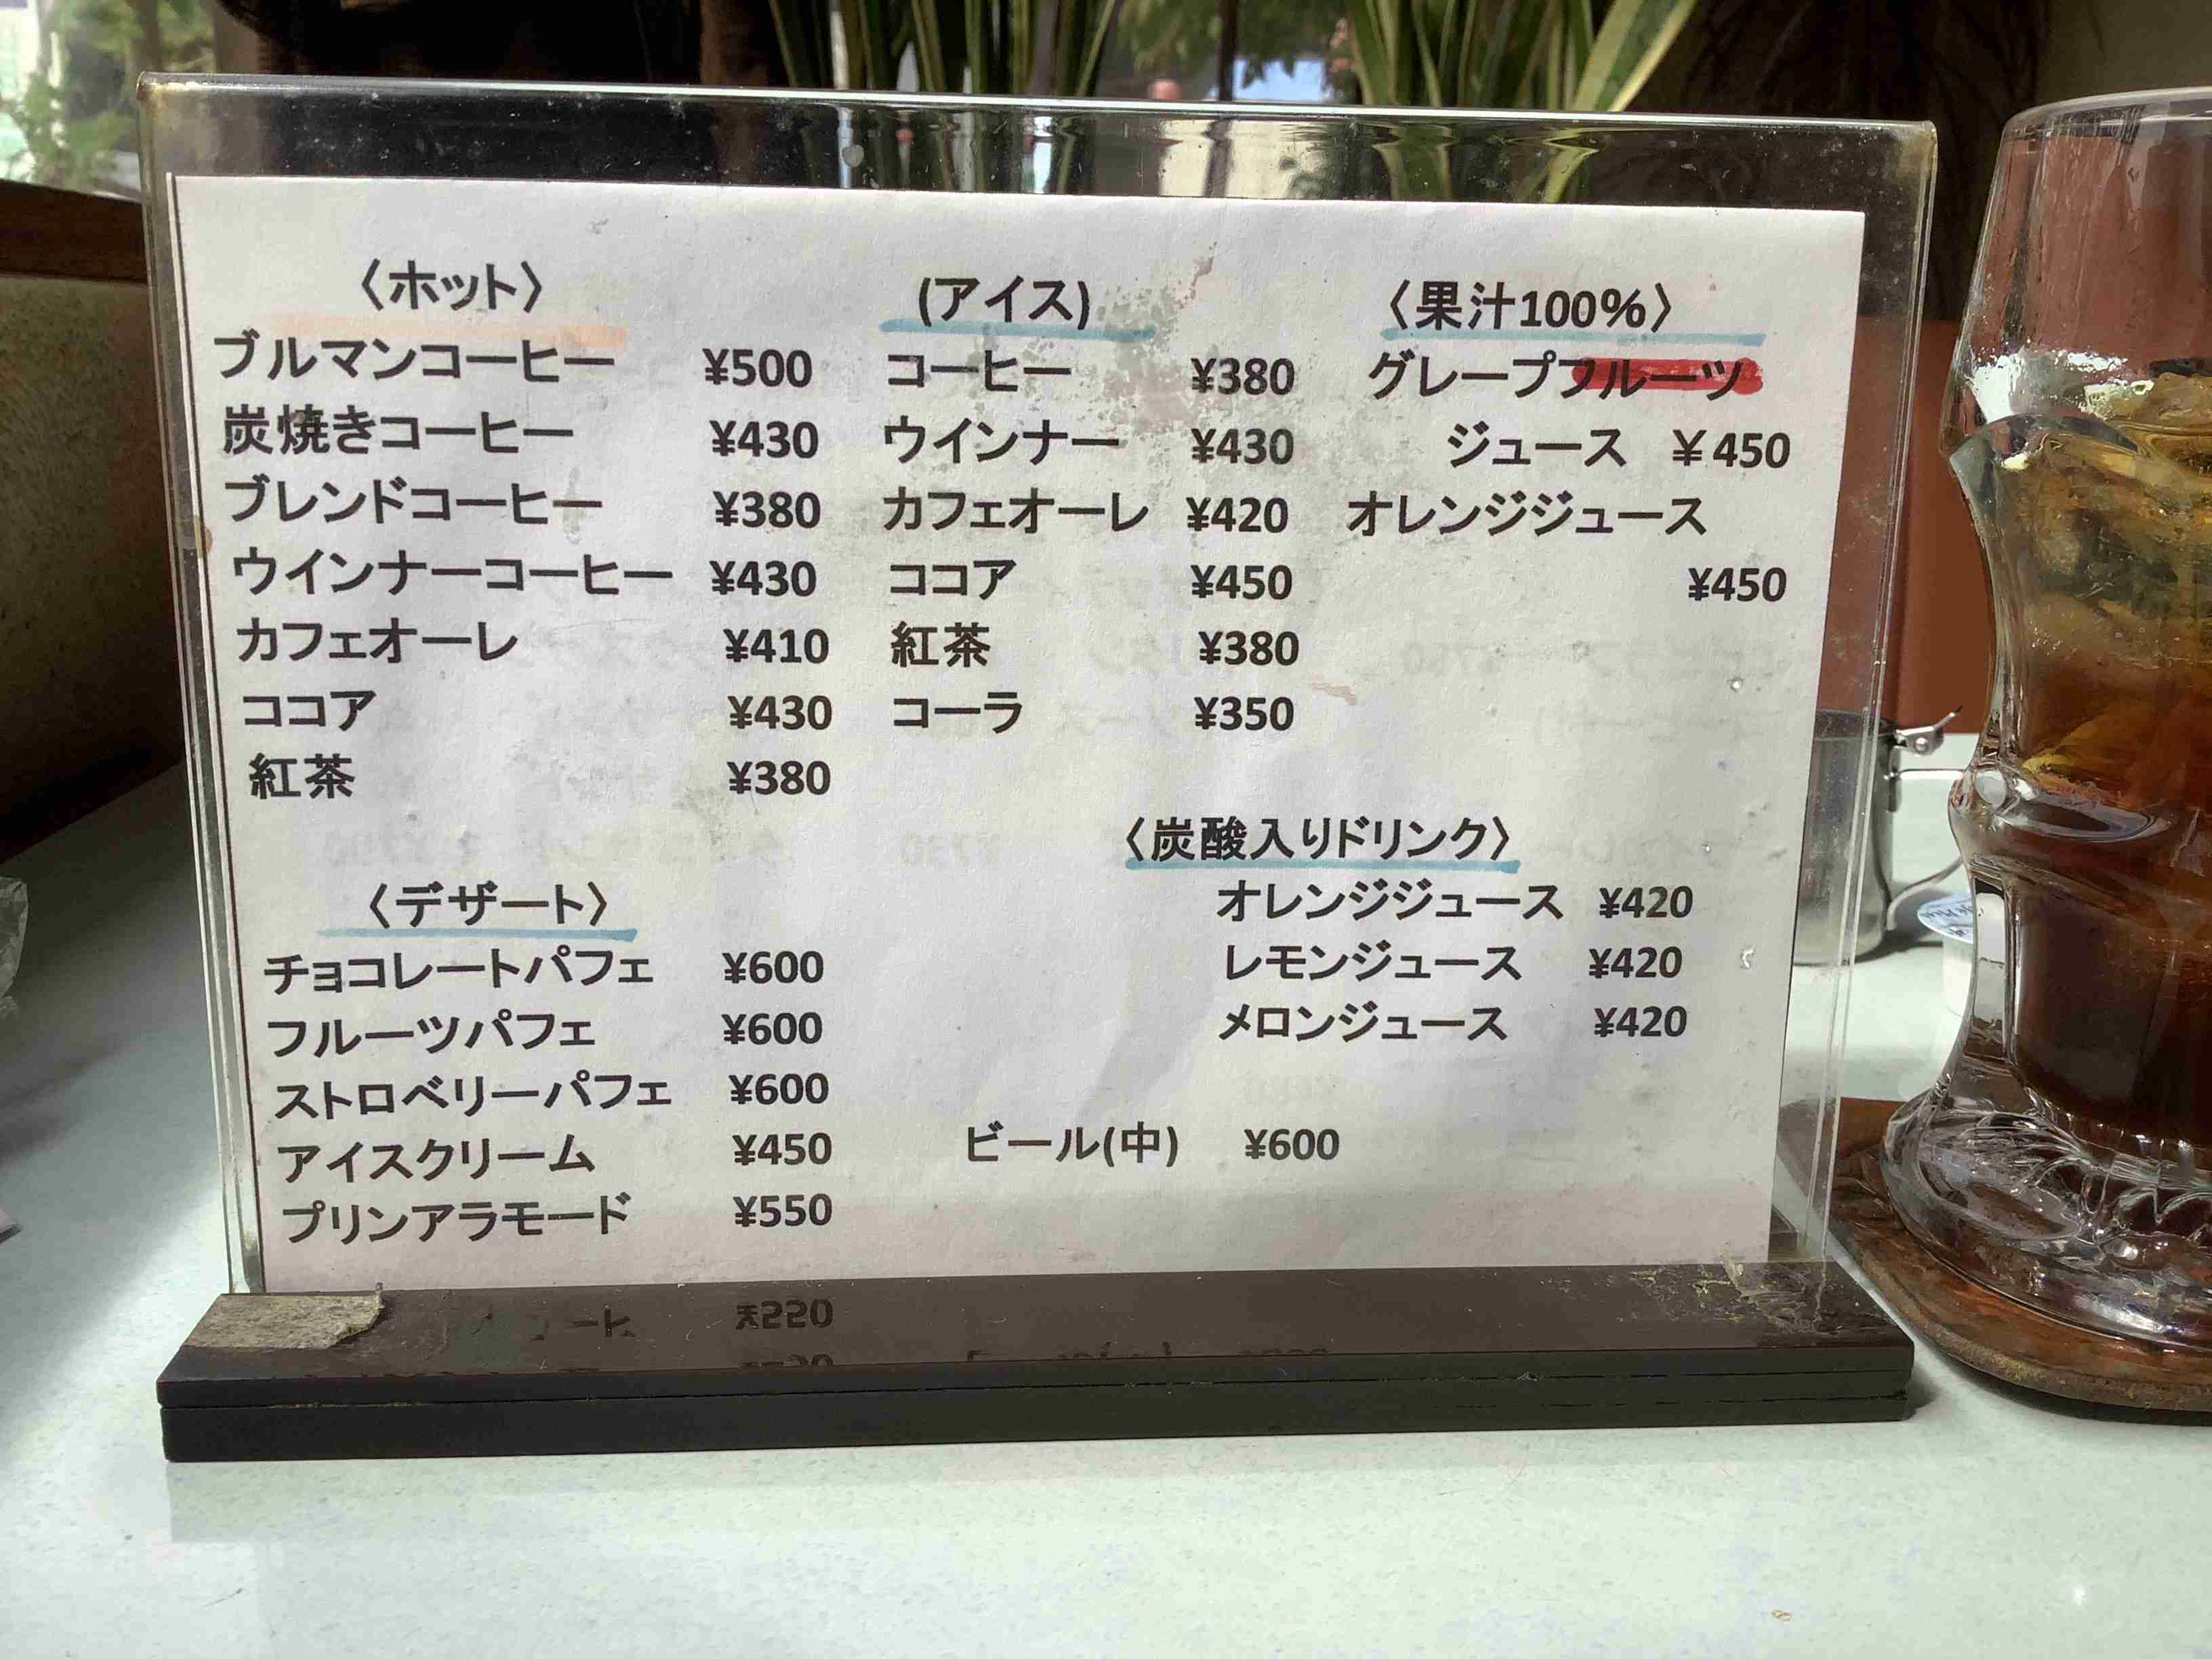 〈ホット〉
ブルマンコーヒー ¥500
炭焼きコーヒー ¥430
ブレンドコーヒー ¥380
ウインナーコーヒー ¥430
カフェオーレ ¥410
ココア ¥430
紅茶 ¥380
(アイス)
コーヒー ¥380
ウインナー ¥430
カフェオーレ ¥420
ココア ¥450
紅茶 ¥380
コーラ ¥350
〈果汁100%〉
グレープフルーツ
ジュース ¥450
オレンジジュース
¥450
〈デザート〉
チョコレートパフェ ¥600
フルーツパフェ ¥600
ストロベリーパフェ ¥600
アイスクリーム ¥450
プリンアラモード ¥550
〈炭酸入りドリンク〉
オレンジジュース ¥420
レモンジュース ¥420
メロンジュース ¥420
ビール(中) ¥600